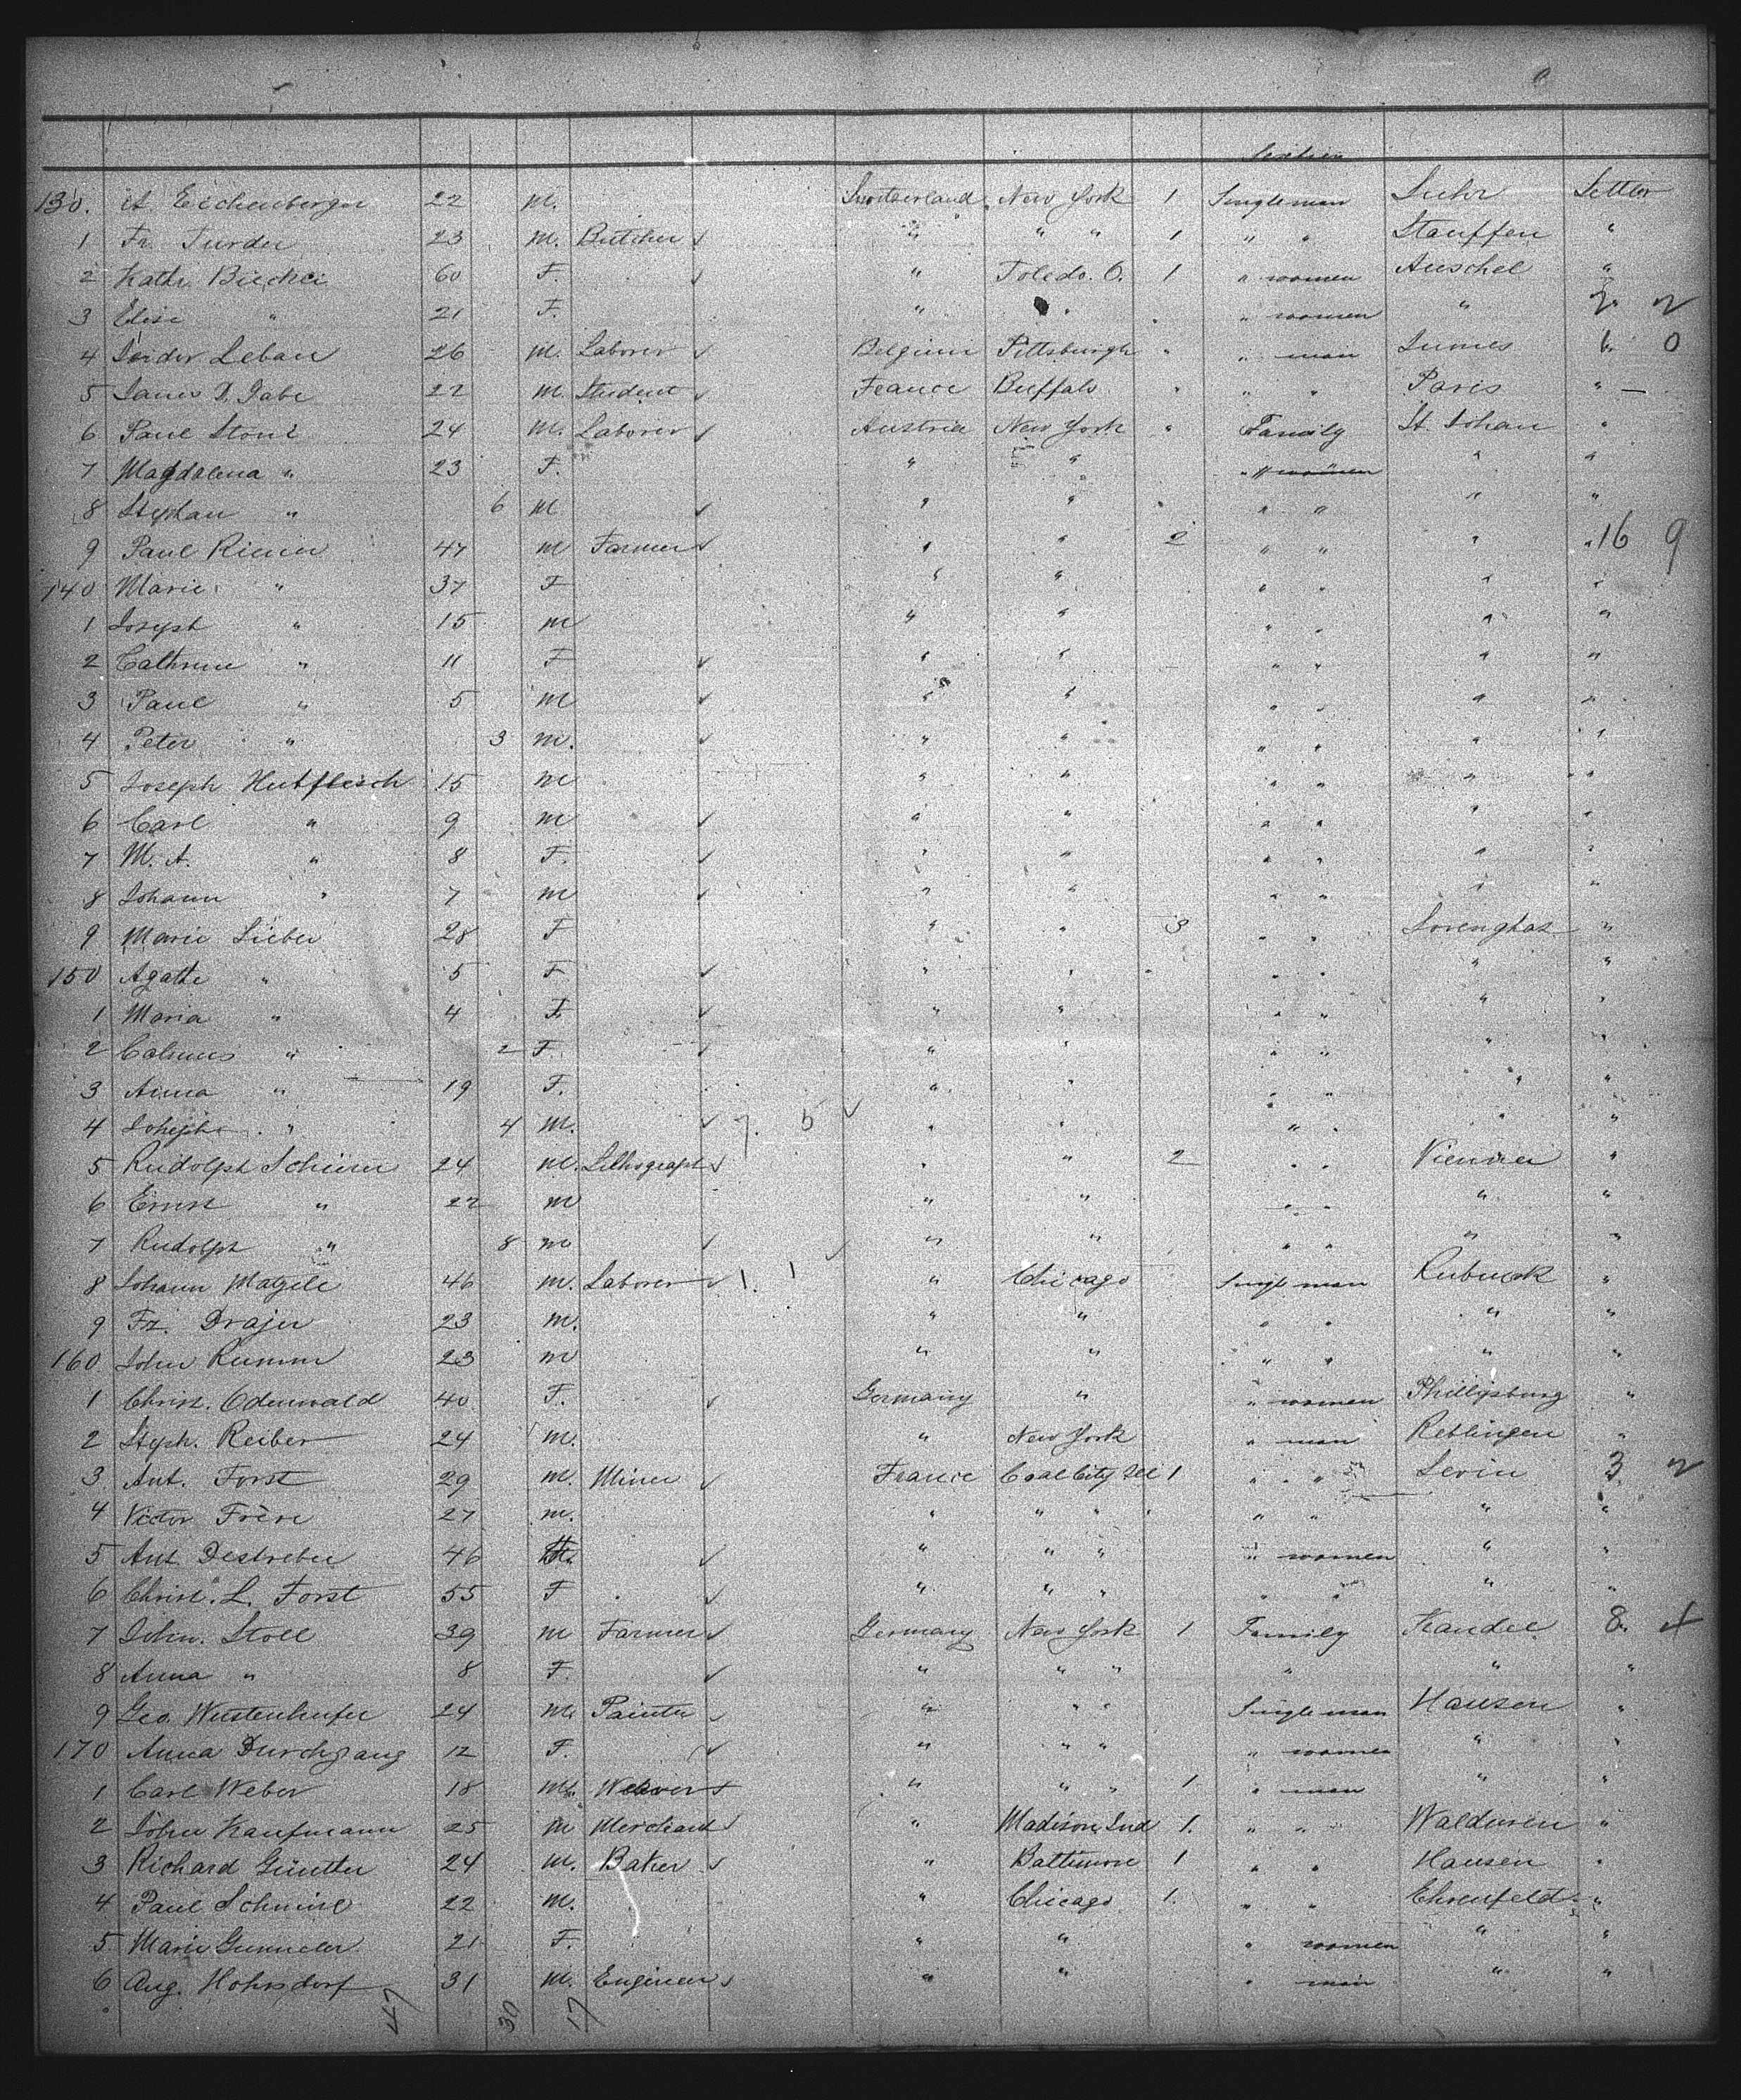 Section
130. A Eichenberger 22 M. Switzerland New York 1 Single man Suhr Settler
1 Fr. Furder 23 M. Butcher " " " 1 " " Stauffen "
2 Kath. 60 F. " Toledo. O. 1 " women Auschel "
3 Elise " 21 F. " " " " women "
4 Leban 26 M. Laborer Belgium Pittsburgh " " man Jumes 6 0
5 22 M. Student France Buffalo " " " Paris " —
6 Paul 24 M. Laborer Austria New York " Family St. Johan "
7 Magdalena " 23 F. " " " " women " "
8 Stephan " 6 M " " " " " " "
9 Paul Riemer 47 M Farmer " " 2 " " " " 16 9
140 Marie " 37 F " " " " " "
1 Joseph " 15 M " " " " " "
2 Cathrine " 11 F " " " " " "
3 Paul " 5 M " " " " " "
4 Peter " 3 M. " " " " " "
5 Joseph Hutflesch 15 M " " " " " "
6 Carl " 9 M " " " " " "
7 M. A. " 8 F. " " " " " "
8 Johann " 7 M " " " " " "
9 Marie Lieber 28 F " " 3 " " "
150 Agathe " 5 F " " " " " " "
1 Maria " 4 F. " " " " " "
2 " 2 F. " " " " " "
3 Anna " 19 F. " " " " " "
4 " 4 M. 7. 5 " " " " " "
5 Rudolph 24 M. Lithograph " " 2 " " Vienna "
6 Ernst " 22 M " " " " " "
7 Rudolph " 8 M " " " " " "
8 Johann Matzele 46 M. Laborer 1. 1 " Chicago Single man "
9 Fz. Drajer 23 M. " " " " " "
160 John Rumm 23 M " " " " " "
1 Christ. Odenwald 40 F. Germany " " women Phillipsburg "
2 Steph. Reiber 24 M. " New York " man Reblingen "
3 Ant. Forst 29 M. Miner France Coal City Ill 1 " " 3
4 Victor Frère 27 M. " " " " " " " "
5 Ant. 46 " " " " women " "
6 Christ. L. Forst 55 F " " " " " " "
7 John. Stoll 39 M Farmer Germany New York 1 Family Kandel 8
8 Anna " 8 F. " " " " " "
9 Geo. Wustenhufer 24 M. Painter " " " Single man Hausen "
170 Anna Durchgang 12 F. " " " " women " "
1 Carl Weber 18 M. Weaver " " " 1 " man " "
2 John Kaufmann 25 M Merchant " Madison Ind 1. " " Walduren "
3 Richard Günther 24 M. Baker " Baltimore 1 " " Hausen "
4 Paul 22 M. " Chicago 1. " " Ehrenfeld "
5 Marie 21 F. " " " women " "
6 Aug. Hohrsdorf 31 M. Engineer " " " man " "
47 30 17